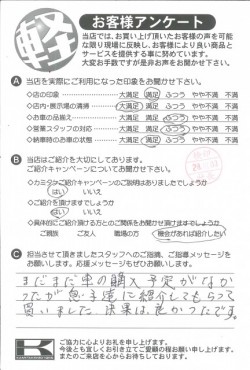 軽
お客様アンケート
当店では、お買い上げ頂いたお客様の声を可能
な限り現場に反映し、お客様により良い商品と
サービスを提供する事に努めています。
大変お手数ですが是非お声をお聞かせ下さい。
A 当店を実際にご利用になった印象をお聞かせ下さい。
◇店の印象 大満足 満足 ふつう やや不満 不満
◇店内・展示場の清掃 大満足 満足 ふつう やや不満 不満
◇お車の品揃え 大満足 満足 ふつう やや不満 不満
◇営業スタッフの対応 大満足 満足 ふつう やや不満 不満
◇納車時のお車の状態 大満足 満足 ふつう やや不満 不満
B 当店はご紹介を大切にしております。
ご紹介キャンペーンについてお聞かせ下さい。
◇カミタケご紹介キャンペーンのご説明はありましたでしょうか
はい いいえ
◇ご紹介を頂けますでしょうか
はい いいえ
◇具体的にご紹介頂ける方とのご関係をお聞かせ頂けますでしょうか
ご親族 ご友人 職場の方 機会があれば紹介したい
C 担当させて頂きましたスタッフへのご指摘、ご指導メッセージを
お願いします。応援メッセージもぜひお願いします。
まだまだ車の購入予定がなか
ったが急に友達に紹介してもらって
買いました。結果は良かったです。
K
ご協力に心よりお礼を申し上げます。
今後とも宜しくお付き合いの程お願い申し上げます。
またのご来店を心からお待ちしております。